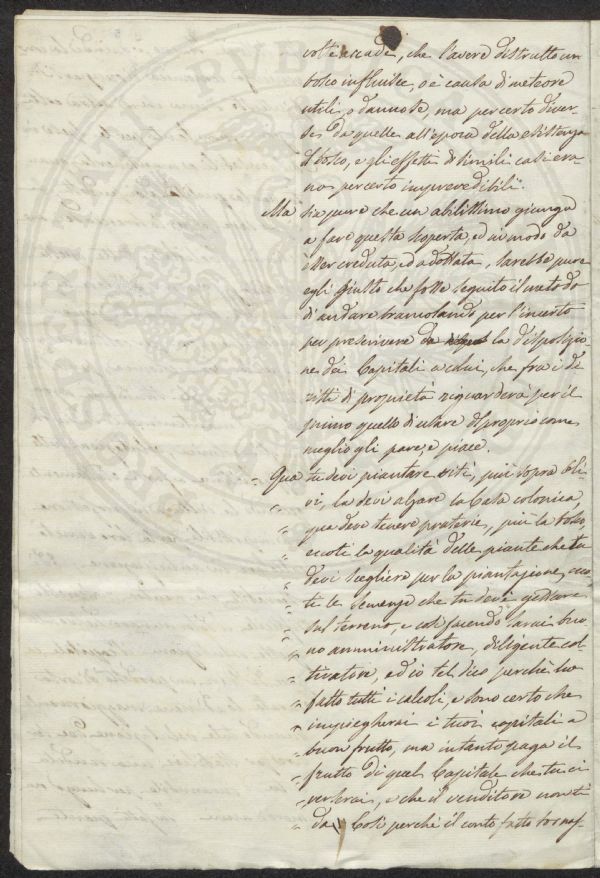 volte accade, che l'avere distrutto un
bosco influisce, o è causa di meteore
utili, o dannose, ma per certo diver-
se da quelle all'epoca della esistenza
del bosco, e gli effetti di simili casi era-
no per certo imprevedibili.
Ma sia pure che un abilissimo giunga
a fare questa scoperta, ed in modo da
esser creduta, ed adottata, sarebbe pure
egli giusto che fosse seguito il metodo
di andare brancolando per l'incerto
per prescrivere la disposizio-
ne dei Capitali a colui, che fra i di
ritti di proprietà riguarderà per il
primo quello di usare del proprio come
meglio gli pare, e piace.
" Qua tu devi piantare viti, più sopra Oli-
" vi, la devi alzare la Casa colonica,
" qua deve tenere praterie, più là bosco,
" eccoti la qualità delle piante che tu
" devi scegliere per la piantazione, ecco
" te le semenze che tu devi gettare
" sul terreno, e così facendo sarai buo-
" no amministratore, diligente col-
" tivatore, ed io tel dico perchè ho
" fatto tutti i calcoli, e sono certo che
" impiegherai i tuoi capitali a
" buon frutto, ma intanto paga il
" frutto di quel Capitale che tu ci
" verserai, e che il venditore non ti
" dà. Così perchè il conto fatto tornas-